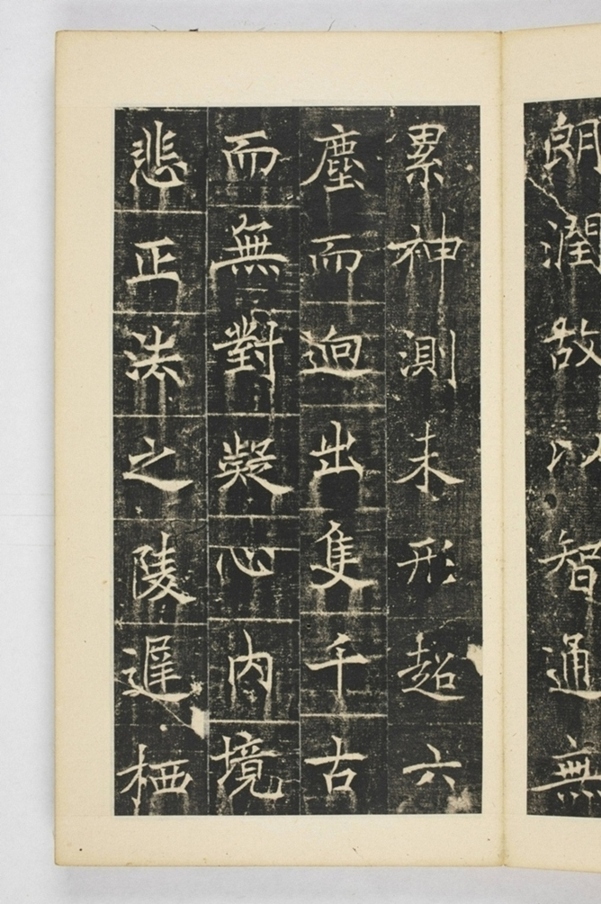 朗潤故以智通無
累神測未形超六
塵而逈出隻千古
而無對凝心內境
悲正法之陵遲栖